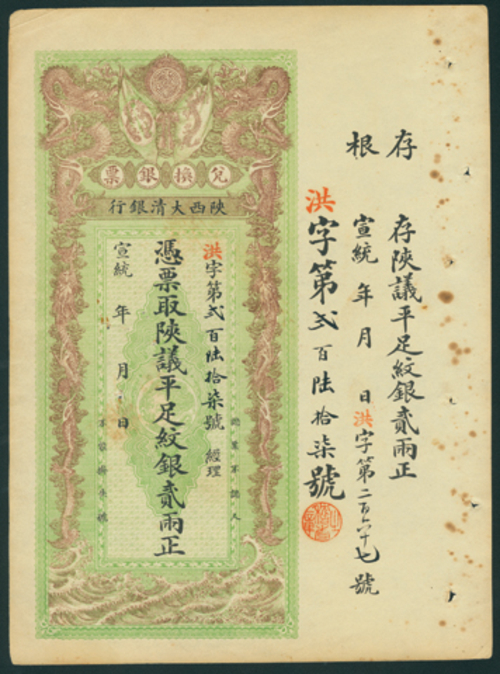 存根
存陝議平足紋銀貳兩正
宣統 年 月 日洪字第二百六十七號
洪字第貳百陸拾柒號
兌換銀票
陝西大清銀行
洪字第貳百陸拾柒號 經理
憑票取陝議平足紋銀貳兩正
宣統 年 月 日